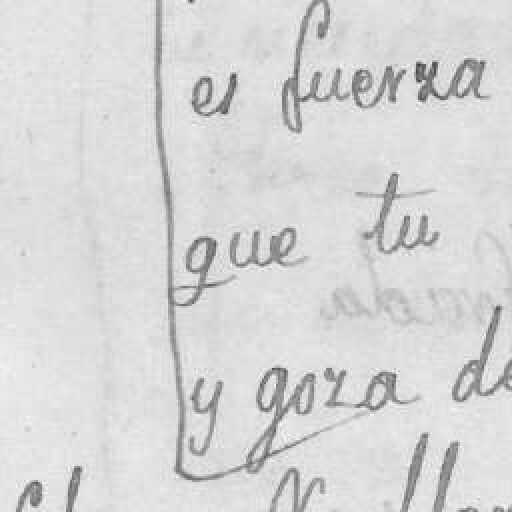 es fuerza
que tu
y goza de